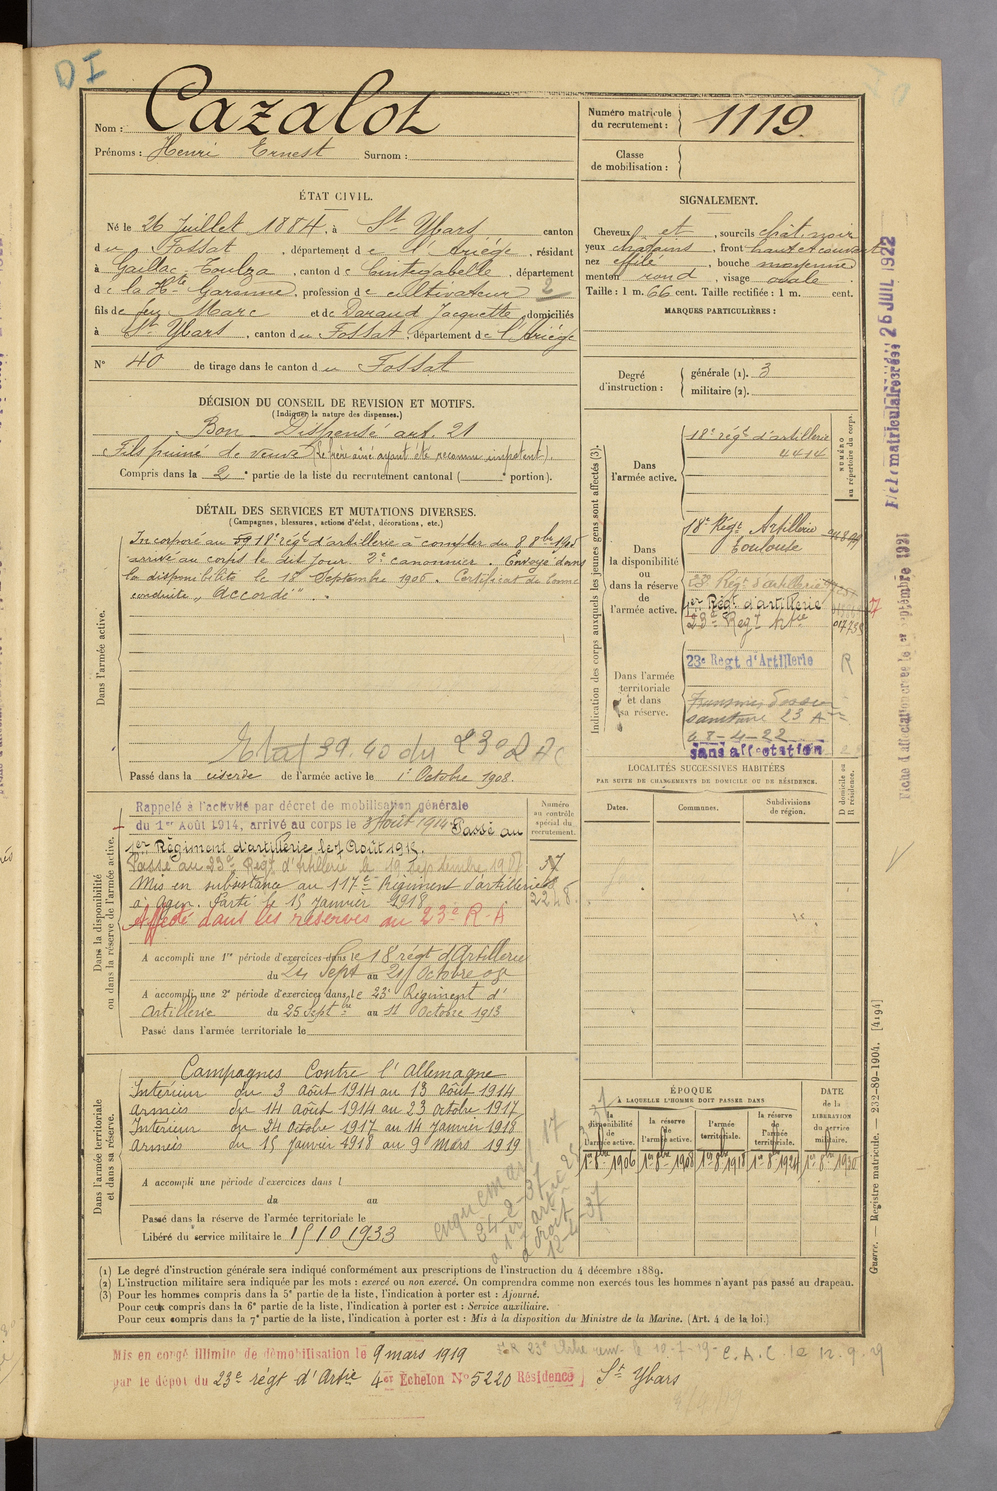 DI
Nom : Cazalot
Prénoms : Henri Ernest Surnom :
Numéro matricule du recrutement : 1119
Classe de mobilisation :
ÉTAT CIVIL.
Né le 26 Juillet 1884, à St Ybars canton
du Fossat, département de l'Ariège, résidant
à Gaillac-Toulza, canton de Cintegabelle, département
de la Hte Garonne, profession de cultivateur 2
fils de feu Marc et de Daraud Jacquette domiciliés
à St Ybars, canton du Fossat, département de l'Ariège
N° 40 de tirage dans le canton du Fossat
SIGNALEMENT.
Cheveux et, sourcils chât. noir
yeux chatains, front haut et couvert
nez effilé, bouche moyenne
menton rond, visage ovale
Taille : 1 m. 66 cent. Taille rectifiée : 1 m. cent.
MARQUES PARTICULIÈRES :
Degré d'instruction : générale (1). 3
militaire (2).
DÉCISION DU CONSEIL DE REVISION ET MOTIFS.
(Indiquer la nature des dispenses.)
Bon Dispensé art. 21
Fils puiné de veuve (le frère aîné ayant été reconnu impotent).
Compris dans la 2e partie de la liste du recrutement cantonal ( portion).
DÉTAIL DES SERVICES ET MUTATIONS DIVERSES.
(Campagnes, blessures, actions d'éclat, décorations, etc.)
Dans l'armée active.
Incorporé au 18e régt d'artillerie à compter du 8 8bre 1905
arrivé au corps le dit jour. 2e canonnier. Envoyé dans
la disponibilité le 18 Septembre 1906. Certificat de bonne
conduite „ Accordé".
Etat 39.40 du 23e
Passé dans la réserve de l'armée active le 1er Octobre 1908.
Indication des corps auxquels les jeunes gens sont affectés (3).
NUMÉRO au répertoire du corps.
Dans l'armée active.
18e régt d'artillerie
4414
Dans la disponibilité ou dans la réserve de l'armée active.
18e Régt Artillerie
Toulouse
23e Régt d'artillerie
1er Régt d'artillerie
23e Régt Artie
Dans l'armée territoriale et dans sa réserve.
23e Regt d'Artillerie R
sanitaire 23 A
8-4-22
sans affectation
LOCALITÉS SUCCESSIVES HABITÉES
PAR SUITE DE CHANGEMENTS DE DOMICILE OU DE RÉSIDENCE.
Dates. Communes. Subdivisions de région.
D domicile ou R résidence.
Dans la disponibilité ou dans la réserve de l'armée active.
Numéro au contrôle spécial du recrutement.
Rappelé à l'activité par décret de mobilisation générale
du 1er Août 1914, arrivé au corps le 3 Août 1914 Passé au
1er Régiment d'artillerie le 1 Août 1915.
Passé au 23e Régt d'Artillerie le 19 Septembre 1917
Mis en subsistance au 117e Régiment d'artillerie
à Agen. Parti le 15 Janvier 1918
2248.
Affecté dans les réserves au 23e R-A
A accompli une 1re période d'exercices dans le 18e régt d'Artillerie
du 24 Sept au 21 Octobre
A accompli une 2e période d'exercices dans le 23e Régiment d'
Artillerie du 25 Septbre au 11 Octobre 1913
Passé dans l'armée territoriale le
Dans l'armée territoriale et dans sa réserve.
Campagnes Contre l'Allemagne
Intérieur du 3 Août 1914 au 13 Août 1914
Armées du 14 Août 1914 au 23 octobre 1917
Intérieur du 24 Octobre 1917 au 14 Janvier 1918
Armées du 15 Janvier 1918 au 9 Mars 1919
A accompli une période d'exercices dans l
du au
Passé dans la réserve de l'armée territoriale le
Libéré du service militaire le 15 10 1933
24-2-37
ÉPOQUE
À LAQUELLE L'HOMME DOIT PASSER DANS
la disponibilité de l'armée active.
la réserve de l'armée active.
l'armée territoriale.
la réserve de l'armée territoriale.
DATE de la LIBÉRATION du service militaire.
1er 8bre 1906 1er 8bre 1908 1er 8bre 1918 1er 8bre 1924 1er 8bre 1930
(1) Le degré d'instruction générale sera indiqué conformément aux prescriptions de l'instruction du 4 décembre 1889.
(2) L'instruction militaire sera indiquée par les mots : exercé ou non exercé. On comprendra comme non exercés tous les hommes n'ayant pas passé au drapeau.
(3) Pour les hommes compris dans la 5e partie de la liste, l'indication à porter est : Ajourné.
Pour ceux compris dans la 6e partie de la liste, l'indication à porter est : Service auxiliaire.
Pour ceux compris dans la 7e partie de la liste, l'indication à porter est : Mis à la disposition du Ministre de la Marine. (Art. 4 de la loi.)
Mis en congé illimité de démobilisation le 9 mars 1919
par le dépôt du 23e régt d'Artie 4er Échelon N° 5220 Résidence St Ybars
C.A.C. le 12.9.29
Guerre. — Registre matricule. — 232-89-1904. [4194]
Fiche matriculaire créée 26 JUIL 1922
Fiche d'affectation créée le 1er septembre 1921